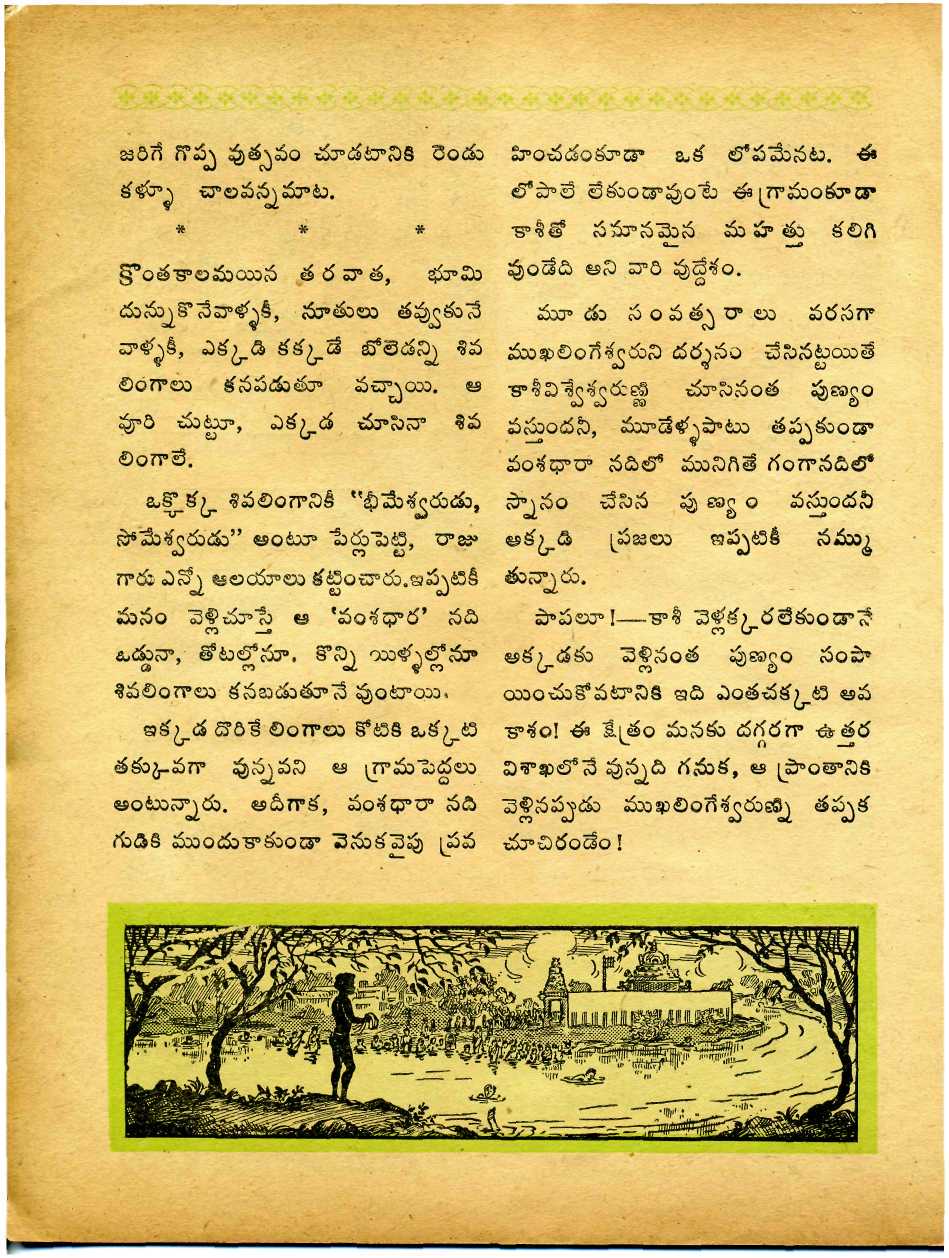 జరిగే గొప్ప వుత్సవం చూడటానికి రెండు
కళ్ళూ చాలవన్నమాట.
* * *
క్రొంతకాలమయిన తరవాత, భూమి
దున్నుకొనేవాళ్ళకీ, నూతులు తవ్వుకునే
వాళ్ళకీ, ఎక్కడి కక్కడే బోలెడన్ని శివ
లింగాలు కనపడుతూ వచ్చాయి. ఆ
వూరి చుట్టూ, ఎక్కడ చూసినా శివ
లింగాలే.
ఒక్కొక్క శివలింగానికీ "భీమేశ్వరుడు,
సోమేశ్వరుడు" అంటూ పేర్లుపెట్టి, రాజు
గారు ఎన్నో ఆలయాలు కట్టించారు.ఇప్పటికీ
మనం వెళ్లిచూస్తే ఆ 'వంశధార' నది
ఒడ్డునా, తోటల్లోనూ. కొన్ని యిళ్ళల్లోనూ
శివలింగాలు కనబడుతూనే వుంటాయి.
ఇక్కడ దొరికే లింగాలు కోటికి ఒక్కటి
తక్కువగా వున్నవని ఆ గ్రామపెద్దలు
అంటున్నారు. అదీగాక, వంశధారా నది
గుడికి ముందుకాకుండా వెనుకవైపు ప్రవ
హించడంకూడా ఒక లోపమేనట. ఈ
లోపాలే లేకుండావుంటే ఈ గ్రామంకూడా
కాశీతో సమానమైన మహత్తు కలిగి
వుండేది అని వారి వుద్దేశం.
మూడు సంవత్సరాలు వరసగా
ముఖలింగేశ్వరుని దర్శనం చేసినట్టయితే
కాశీవిశ్వేశ్వరుణ్ణి చూసినంత పుణ్యం
వస్తుందనీ, మూడేళ్ళపాటు తప్పకుండా
వంశధారా నదిలో మునిగితే గంగానదిలో
స్నానం చేసిన పుణ్యం వస్తుందనీ
అక్కడి ప్రజలు ఇప్పటికీ నమ్ము
తున్నారు.
పాపలూ!—కాశీ వెళ్లక్కరలేకుండానే
అక్కడకు వెళ్లినంత పుణ్యం సంపా
యించుకోవటానికి ఇది ఎంతచక్కటి అవ
కాశం! ఈ క్షేత్రం మనకు దగ్గరగా ఉత్తర
విశాఖలోనే వున్నది గనుక, ఆ ప్రాంతానికి
వెళ్లినప్పుడు ముఖలింగేశ్వరుణ్ని తప్పక
చూచిరండేం!